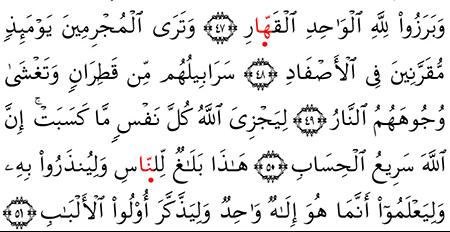 وَبَرَزُوا۟ لِلَّهِ ٱلْوَٰحِدِ ٱلْقَهَّارِ ٤٧ وَتَرَى ٱلْمُجْرِمِينَ يَوْمَئِذٍ
مُّقَرَّنِينَ فِى ٱلْأَصْفَادِ ٤٨ سَرَابِيلُهُم مِّن قَطِرَانٍ وَتَغْشَىٰ
وُجُوهَهُمُ ٱلنَّارُ ٤٩ لِيَجْزِىَ ٱللَّهُ كُلَّ نَفْسٍ مَّا كَسَبَتْ ۚ إِنَّ
ٱللَّهَ سَرِيعُ ٱلْحِسَابِ ٥٠ هَٰذَا بَلَٰغٌ لِّلنَّاسِ وَلِيُنذَرُوا۟ بِهِۦ
وَلِيَعْلَمُوٓا۟ أَنَّمَا هُوَ إِلَٰهٌ وَٰحِدٌ وَلِيَذَّكَّرَ أُو۟لُوا۟ ٱلْأَلْبَٰبِ ٥١